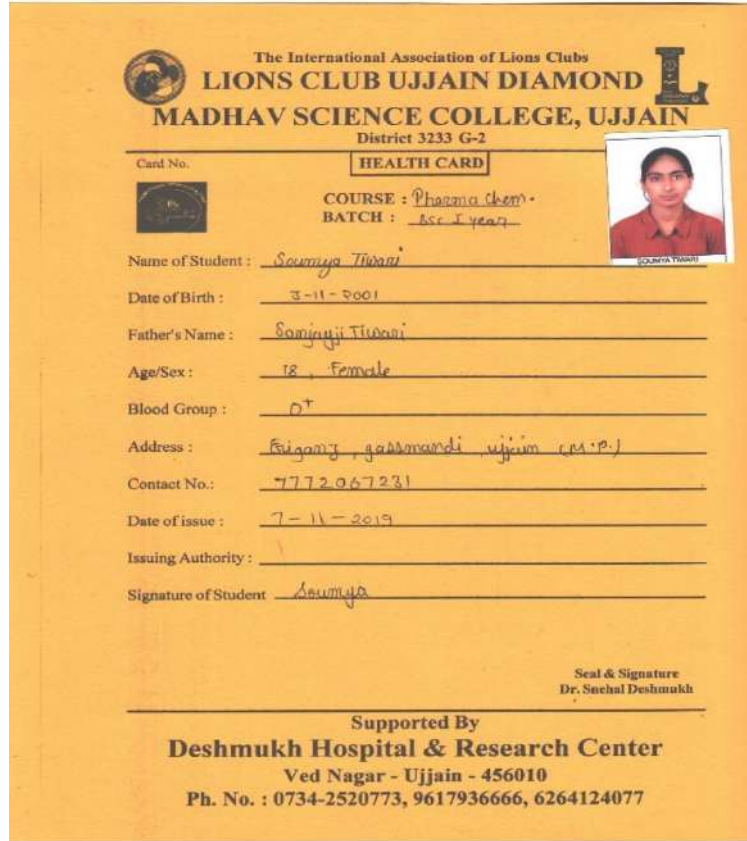 The International Association of Lions Clubs
LIONS CLUB UJJAIN DIAMOND
MADHAV SCIENCE COLLEGE, UJJAIN
District 3233 G-2
Card No.
HEALTH CARD
COURSE : Pharma chem.
BATCH : Bsc I year
SOUMYA TIWARI
Name of Student : Soumya Tiwari
Date of Birth : 3-11-2001
Father's Name : Sanjayji Tiwari
Age/Sex : 18, Female
Blood Group : O+
Address : gassmandi, ujjain (M.P.)
Contact No.: 7772067231
Date of issue : 7-11-2019
Issuing Authority :
Signature of Student Soumya
Seal & Signature
Dr. Snehal Deshmukh
Supported By
Deshmukh Hospital & Research Center
Ved Nagar - Ujjain - 456010
Ph. No. : 0734-2520773, 9617936666, 6264124077